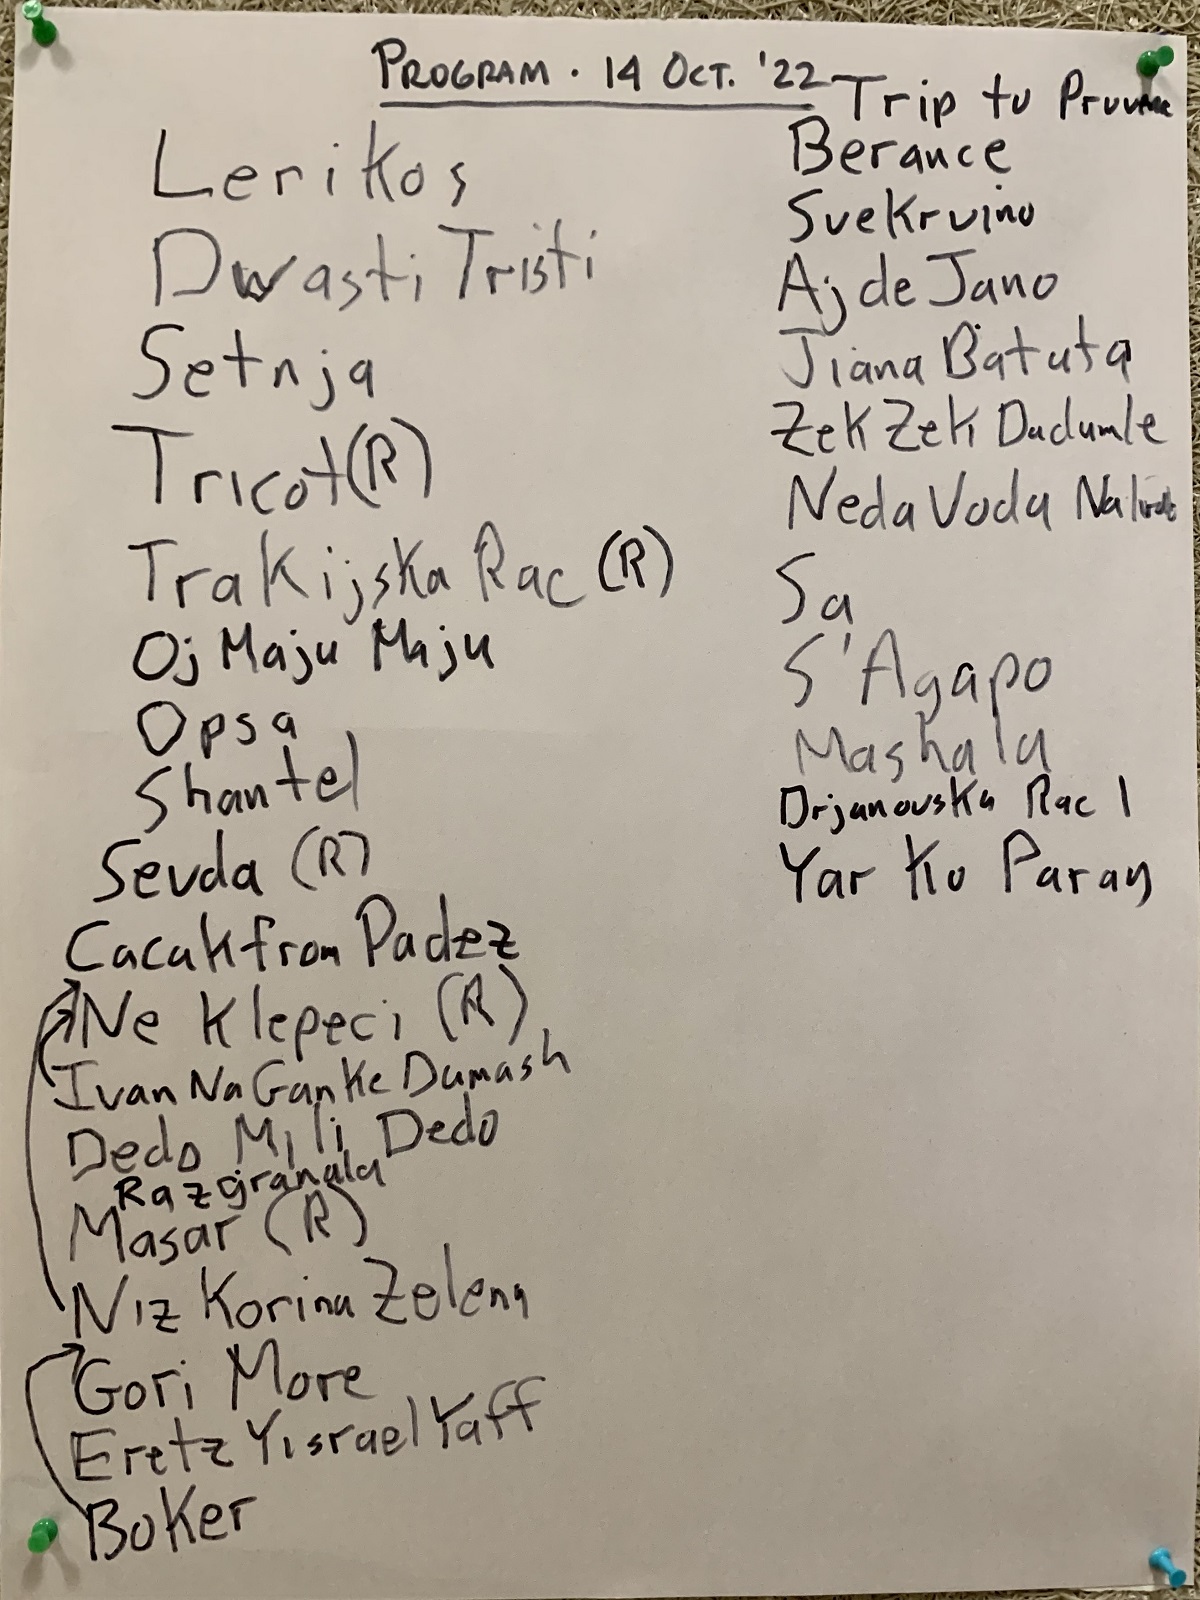 PROGRAM · 14 OCT. '22
Lerikos
Dwasti Tristi
Setnja
Tricot (R)
Trakijska Rac (R)
Oj Maju Maju
Opsa
Shantel
Sevda (R)
Cacak from Padez
Ne Klepeci (R)
Ivan Na Ganke Dumash
Dedo Mili Dedo
Razgranala
Masar (R)
Niz Korina Zelena
Gori More
Eretz Yisrael Yaff
Boker
Trip to
Berance
Svekrvino
Ajde Jano
Jiana Batuta
Zek Zeki Dudumle
Neda Voda
Sa
S'Agapo
Mashala
Drjanovska Rac 1
Yar Ko Parag